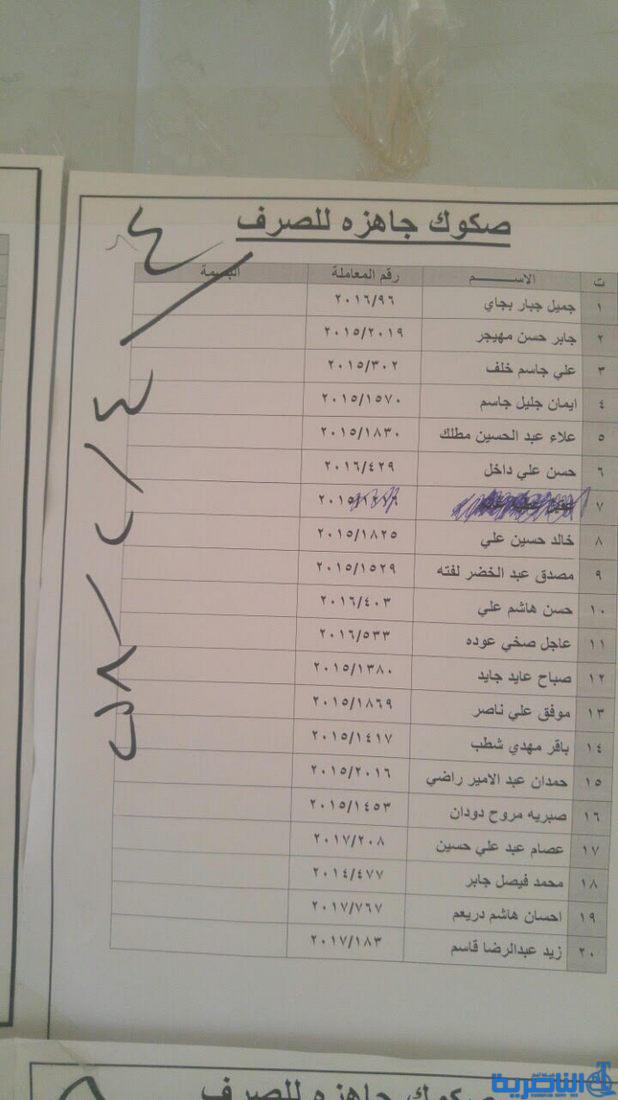 صكوك جاهزه للصرف
ت الاســـــم رقم المعاملة البصمة
١ جميل جبار بجاي ٢٠١٦/٩٦
٢ جابر حسن مهيجر ٢٠١٥/٢٠١٩
٣ علي جاسم خلف ٢٠١٥/٣٠٢
٤ ايمان جليل جاسم ٢٠١٥/١٥٧٠
٥ علاء عبد الحسين مطلك ٢٠١٥/١٨٣٠
٦ حسن علي داخل ٢٠١٦/٤٢٩
٧
٨ خالد حسين علي ٢٠١٥/١٨٢٥
٩ مصدق عبد الخضر لفته ٢٠١٥/١٥٢٩
١٠ حسن هاشم علي ٢٠١٦/٤٠٣
١١ عاجل صخي عوده ٢٠١٦/٥٣٣
١٢ صباح عايد جايد ٢٠١٥/١٣٨٠
١٣ موفق علي ناصر ٢٠١٥/١٨٦٩
١٤ باقر مهدي شطب ٢٠١٥/١٤١٧
١٥ حمدان عبد الامير راضي ٢٠١٥/٢٠١٦
١٦ صبريه مروح دودان ٢٠١٥/١٤٥٣
١٧ عصام عبد علي حسين ٢٠١٧/٢٠٨
١٨ محمد فيصل جابر ٢٠١٤/٤٧٧
١٩ احسان هاشم دريعم ٢٠١٧/٧٦٧
٢٠ زيد عبدالرضا قاسم ٢٠١٧/١٨٣
صكوك جاهزه للصرف
الناصرية